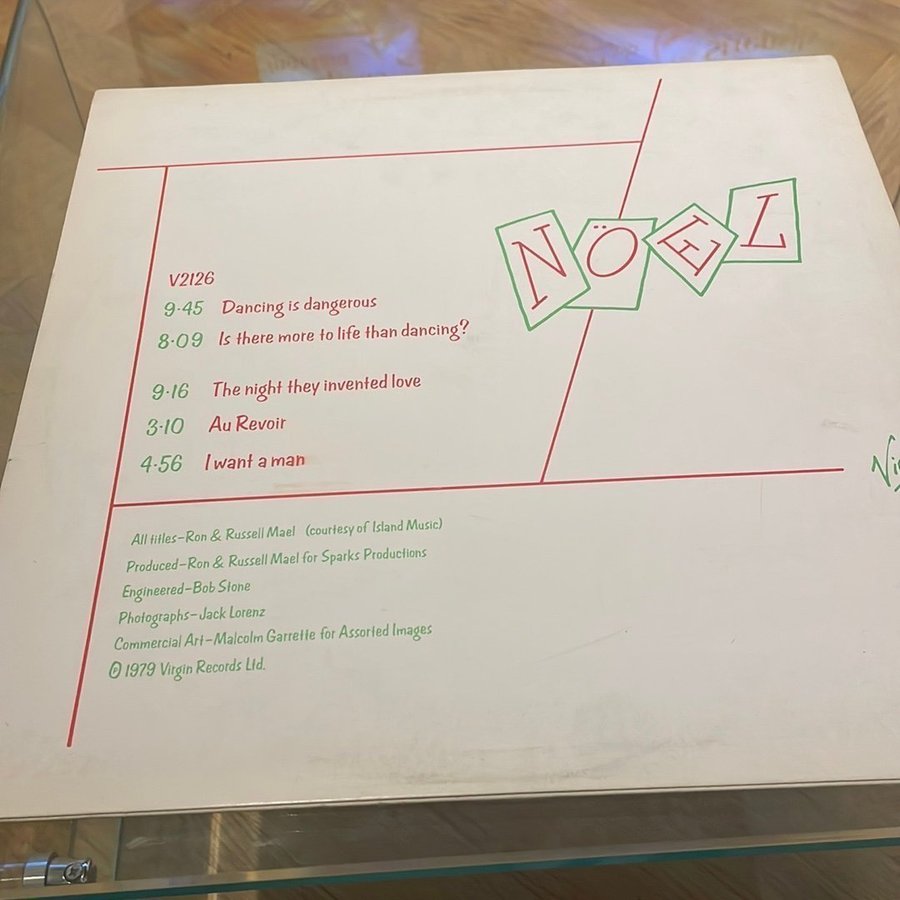 NÖEL
V2126
9·45 Dancing is dangerous
8·09 Is there more to life than dancing?
9·16 The night they invented love
3·10 Au Revoir
4·56 I want a man
All titles–Ron & Russell Mael (courtesy of Island Music)
Produced–Ron & Russell Mael for Sparks Productions
Engineered–Bob Stone
Photographs–Jack Lorenz
Commercial Art–Malcolm Garrette for Assorted Images
℗ 1979 Virgin Records Ltd.